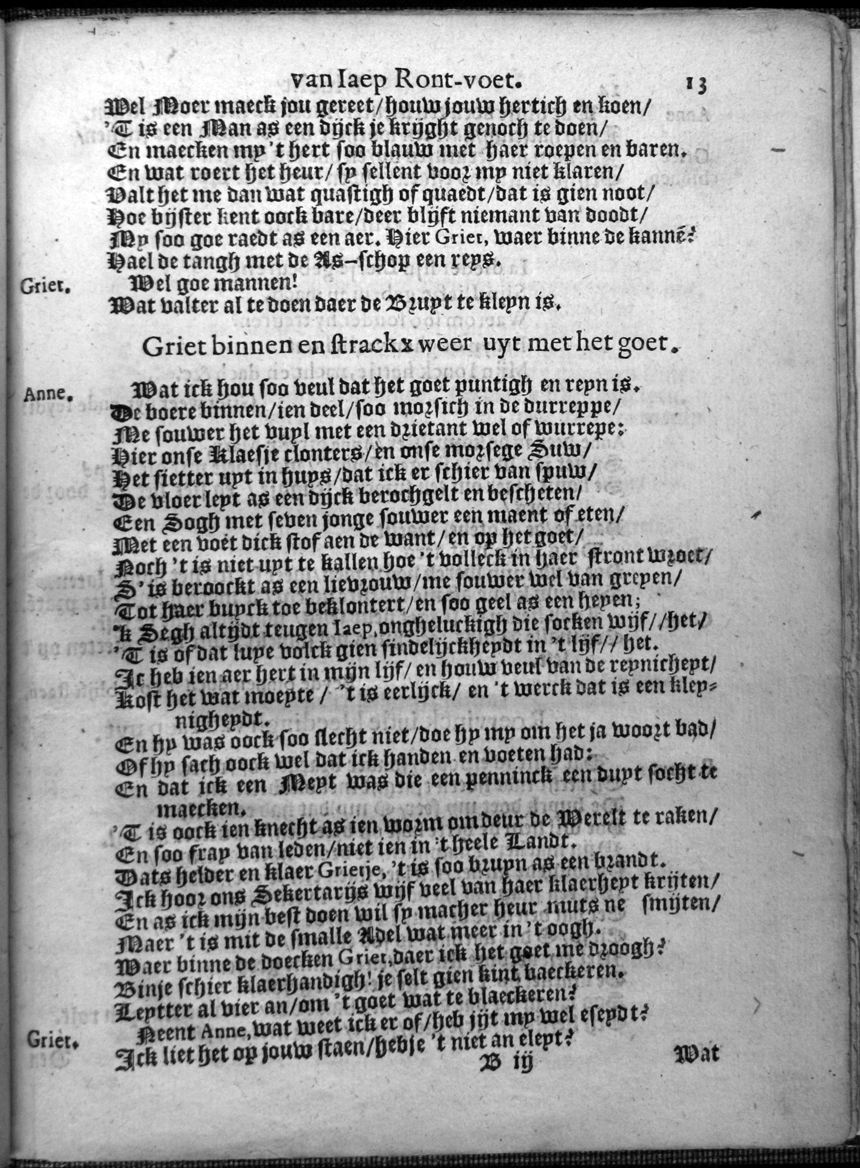 van Iaep Ront-voet. 13
Wel Moer maeck jou gereet/houw jouw hertich en koen/
'T is een Man as een dijck je krijght genoch te doen/
En maecken my 't hert soo blauw met haer roepen en baren.
En wat roert het heur/ sy sellent voor my niet klaren/
Valt het me dan wat quastigh of quaedt/dat is gien noot/
Hoe bijster kent oock bare/deer blijft niemant van doodt/
My soo goe raedt as een aer. Hier Griet, waer binne de kannē?
Hael de tangh met de As-schop een reys.
Griet. Wel goe mannen!
Wat valter al te doen daer de Bruyt te kleyn is.
Griet binnen en strackx weer uyt met het goet.
Anne. Wat ick hou soo veul dat het goet puntigh en reyn is.
De boere binnen/ien deel/soo morsich in de durreppe/
Me souwer het vuyl met een drietant wel of wurrepe:
Hier onse Klaesje clonters/en onse morsege Suw/
Het sietter uyt in huys/dat ick er schier van spuw/
De vloer leyt as een dijck berochgelt en bescheten/
Een Sogh met seven jonge souwer een maent of eten/
Met een voet dick stof aen de want/en op het goet/
Noch 't is niet uyt te kallen hoe 't volleck in haer stront wroet/
S'is beroockt as een lievrouw/me souwer wel van grepen/
Tot haer buyck toe beklontert/en soo geel as een hepen;
'k Segh altijdt teugen Iaep, ongheluckigh die socken wijf//het/
'T is of dat luye volck gien sindelijckheydt in 't lijf// het.
Ic heb ien aer hert in mijn lijf/ en houw veul van de reynicheyt/
Kost het wat moeyte / 't is eerlijck/ en 't werck dat is een kley=
nigheydt.
En hy was oock soo slecht niet/doe hy my om het ja woort bad/
Of hy sach oock wel dat ick handen en voeten had:
En dat ick een Meyt was die een penninck een duyt socht te
maecken.
'T is oock ien knecht as ien worm om deur de Werelt te raken/
En soo fray van leden/niet ien in 't heele Landt.
Dats helder en klaer Grietje, 't is soo bruyn as een brandt.
Ick hoor ons Sekertarijs wijf veel van haer klaerheyt krijten/
En as ick mijn best doen wil sy macher heur muts ne smijten/
Maer 't is mit de smalle Adel wat meer in 't oogh.
Waer binne de doecken Griet, daer ick het goet me droogh?
Binje schier klaerhandigh! je selt gien kint vaeckeren.
Leytter al vier an/om 't goet wat te blaeckeren?
Griet. Neent Anne, wat weet ick er of/heb jijt my wel eseydt?
Ick liet het op jouw staen/hebje 't niet an eleyt?
B ij Wat